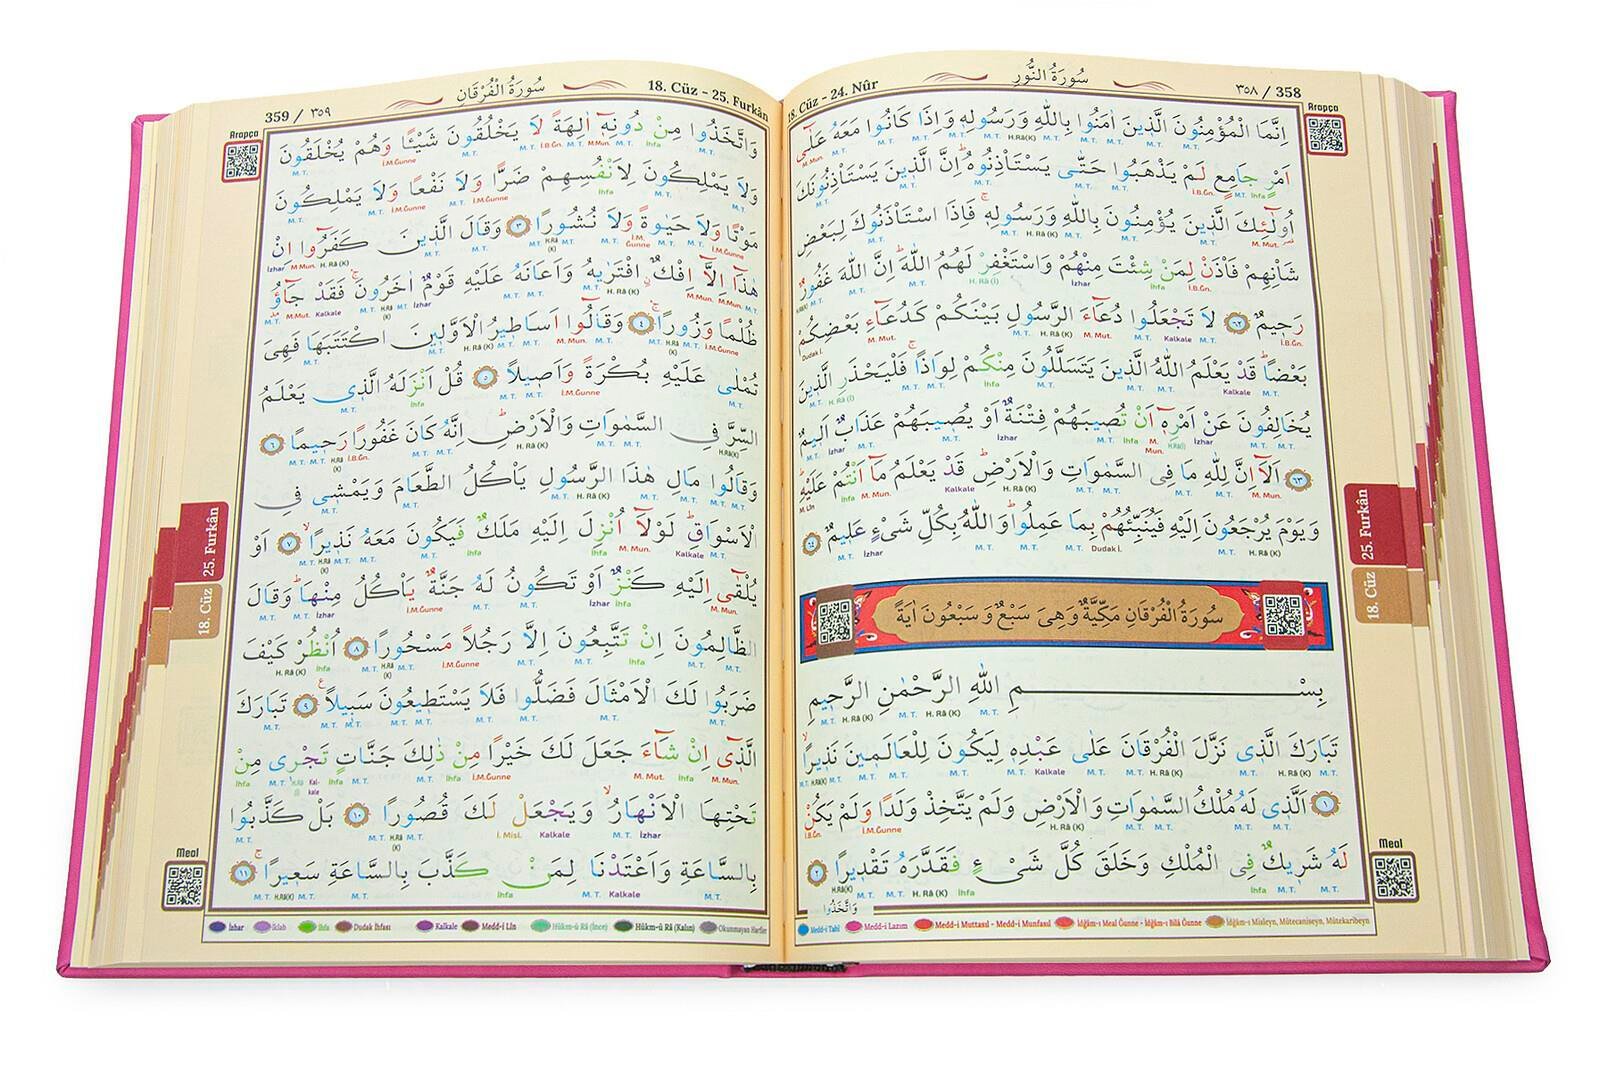 سُورَةُ النُّورِ
18. Cüz - 24. Nûr
٣٥٨ / 358
Arapça
اِنَّمَا الْمُؤْمِنُونَ الَّذ۪ينَ اٰمَنُوا بِاللّٰهِ وَرَسُولِه۪ وَاِذَا كَانُوا مَعَهُ عَلٰٓى
اَمْرٍ جَامِعٍ لَمْ يَذْهَبُوا حَتّٰى يَسْتَأْذِنُوهُۜ اِنَّ الَّذ۪ينَ يَسْتَأْذِنُونَكَ
اُو۬لٰٓئِكَ الَّذ۪ينَ يُؤْمِنُونَ بِاللّٰهِ وَرَسُولِه۪ۚ فَاِذَا اسْتَأْذَنُوكَ لِبَعْضِ
شَأْنِهِمْ فَأْذَنْ لِمَنْ شِئْتَ مِنْهُمْ وَاسْتَغْفِرْ لَهُمُ اللّٰهَۜ اِنَّ اللّٰهَ غَفُورٌ
رَح۪يمٌ ﴿٦٢﴾ لَا تَجْعَلُوا دُعَٓاءَ الرَّسُولِ بَيْنَكُمْ كَدُعَٓاءِ بَعْضِكُمْ
بَعْضًاۜ قَدْ يَعْلَمُ اللّٰهُ الَّذ۪ينَ يَتَسَلَّلُونَ مِنْكُمْ لِوَاذًاۚ فَلْيَحْذَرِ الَّذ۪ينَ
يُخَالِفُونَ عَنْ اَمْرِه۪ٓ اَنْ تُص۪يبَهُمْ فِتْنَةٌ اَوْ يُص۪يبَهُمْ عَذَابٌ اَل۪يمٌ
﴿٦٣﴾ اَلَٓا اِنَّ لِلّٰهِ مَا فِي السَّمٰوَاتِ وَالْاَرْضِۜ قَدْ يَعْلَمُ مَٓا اَنْتُمْ عَلَيْهِۜ
وَيَوْمَ يُرْجَعُونَ اِلَيْهِ فَيُنَبِّئُهُمْ بِمَا عَمِلُواۜ وَاللّٰهُ بِكُلِّ شَيْءٍ عَل۪يمٌ ﴿٦٤﴾
سُورَةُ الْفُرْقَانِ مَكِّيَّةٌ وَهِيَ سَبْعٌ وَسَبْعُونَ اٰيَةً
بِسْمِ اللّٰهِ الرَّحْمٰنِ الرَّح۪يمِ
تَبَارَكَ الَّذ۪ي نَزَّلَ الْفُرْقَانَ عَلٰى عَبْدِه۪ لِيَكُونَ لِلْعَالَم۪ينَ نَذ۪يرًاۙ
﴿١﴾ اَلَّذ۪ي لَهُ مُلْكُ السَّمٰوَاتِ وَالْاَرْضِ وَلَمْ يَتَّخِذْ وَلَدًا وَلَمْ يَكُنْ
لَهُ شَر۪يكٌ فِي الْمُلْكِ وَخَلَقَ كُلَّ شَيْءٍ فَقَدَّرَهُ تَقْد۪يرًا ﴿٢﴾
وَاتَّخَذُوا
25. Furkân
18. Cüz
Meal
Medd-i Tabî Medd-i Lazım Medd-i Muttasıl - Medd-i Munfasıl İdğâm-ı Meal Ğunne - İdğâm-ı Bilâ Ğunne İdğâm-ı Misleyn, Mütecaniseyn, Mütekaribeyn
سُورَةُ الْفُرْقَانِ
18. Cüz - 25. Furkân
359 / ٣٥٩
Arapça
وَاتَّخَذُوا مِنْ دُونِه۪ٓ اٰلِهَةً لَا يَخْلُقُونَ شَيْـًٔا وَهُمْ يُخْلَقُونَ
وَلَا يَمْلِكُونَ لِاَنْفُسِهِمْ ضَرًّا وَلَا نَفْعًا وَلَا يَمْلِكُونَ
مَوْتًا وَلَا حَيٰوةً وَلَا نُشُورًا ﴿٣﴾ وَقَالَ الَّذ۪ينَ كَفَرُٓوا اِنْ
هٰذَٓا اِلَّٓا اِفْكٌۨ افْتَرٰيهُ وَاَعَانَهُ عَلَيْهِ قَوْمٌ اٰخَرُونَۚ فَقَدْ جَٓاؤُ۫
ظُلْمًا وَزُورًاۚ ﴿٤﴾ وَقَالُٓوا اَسَاط۪يرُ الْاَوَّل۪ينَ اكْتَتَبَهَا فَهِيَ
تُمْلٰى عَلَيْهِ بُكْرَةً وَاَص۪يلًا ﴿٥﴾ قُلْ اَنْزَلَهُ الَّذ۪ي يَعْلَمُ
السِّرَّ فِي السَّمٰوَاتِ وَالْاَرْضِۜ اِنَّهُ كَانَ غَفُورًا رَح۪يمًا ﴿٦﴾
وَقَالُوا مَالِ هٰذَا الرَّسُولِ يَأْكُلُ الطَّعَامَ وَيَمْش۪ي فِي
الْاَسْوَاقِۜ لَوْلَٓا اُنْزِلَ اِلَيْهِ مَلَكٌ فَيَكُونَ مَعَهُ نَذ۪يرًاۙ ﴿٧﴾ اَوْ
يُلْقٰٓى اِلَيْهِ كَنْزٌ اَوْ تَكُونُ لَهُ جَنَّةٌ يَأْكُلُ مِنْهَاۜ وَقَالَ
الظَّالِمُونَ اِنْ تَتَّبِعُونَ اِلَّا رَجُلًا مَسْحُورًا ﴿٨﴾ اُنْظُرْ كَيْفَ
ضَرَبُوا لَكَ الْاَمْثَالَ فَضَلُّوا فَلَا يَسْتَط۪يعُونَ سَب۪يلًا۟ ﴿٩﴾ تَبَارَكَ
الَّذ۪ٓي اِنْ شَٓاءَ جَعَلَ لَكَ خَيْرًا مِنْ ذٰلِكَ جَنَّاتٍ تَجْر۪ي مِنْ
تَحْتِهَا الْاَنْهَارُۙ وَيَجْعَلْ لَكَ قُصُورًا ﴿١٠﴾ بَلْ كَذَّبُوا
بِالسَّاعَةِ وَاَعْتَدْنَا لِمَنْ كَذَّبَ بِالسَّاعَةِ سَع۪يرًاۚ ﴿١١﴾
25. Furkân
18. Cüz
Meal
İzhar İklab İhfa Dudak İhfası Kalkale Medd-i Lîn Hükm-ü Râ (İnce) Hükm-ü Râ (Kalın) Okunmayan Harfler